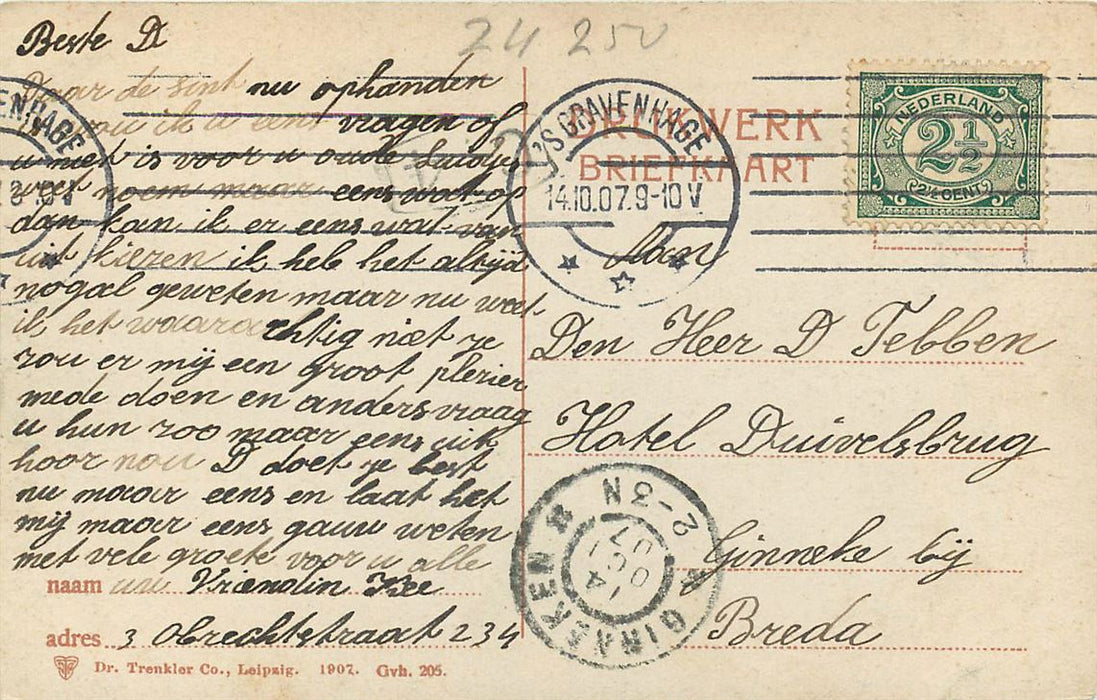 Beste D
Daar de sint nu ophanden
is zou ik u eens vragen of
u niet is voor u oude
weet noem maar eens wat op
dan kan ik er eens wat van
uit kiezen ik heb het altijd
nogal geweten maar nu weet
ik het waarachtig niet ze
zou er mij een groot plezier
mede doen en anders vraag
u hun zoo maar eens uit
hoor nou D doet je best
nu maar eens en laat het
mij maar eens gauw weten
met vele groete voor u alle
naam uw Vriendin Kee
adres 3 Obrechtstraat 234
Dr. Trenkler Co., Leipzig. 1907. Gvh. 205.
24 250
ENHAGE
'S GRAVENHAGE
14.10.07.9-10V
DRUKWERK
BRIEFKAART
NEDERLAND
2½
(2½ CENT)
Den Heer D Tebben
Hotel Duivelsbrug
Ginneke bij
Breda
GINNEKEN
2-3N
14 OCT 07